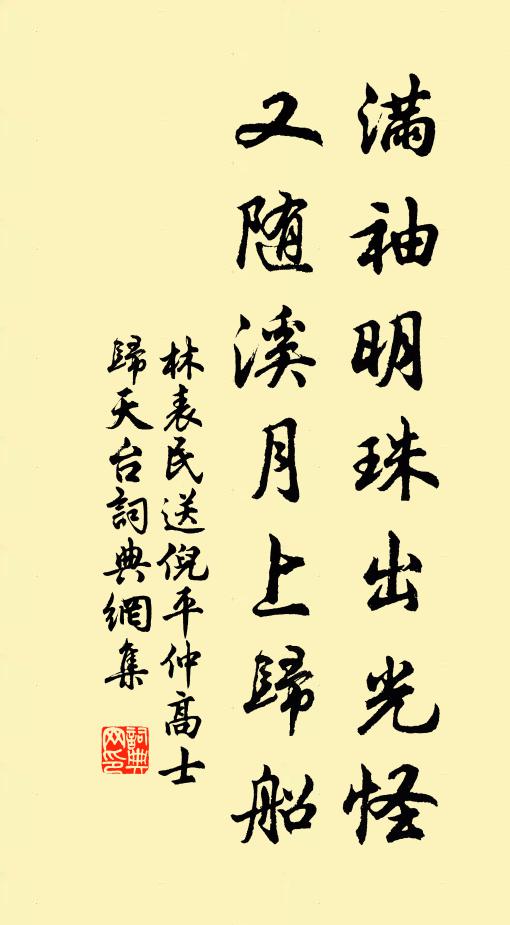 满袖明珠出光怪
又随溪月上歸船
林表民送倪平仲高士
歸天台詞典網集
詞典
网印